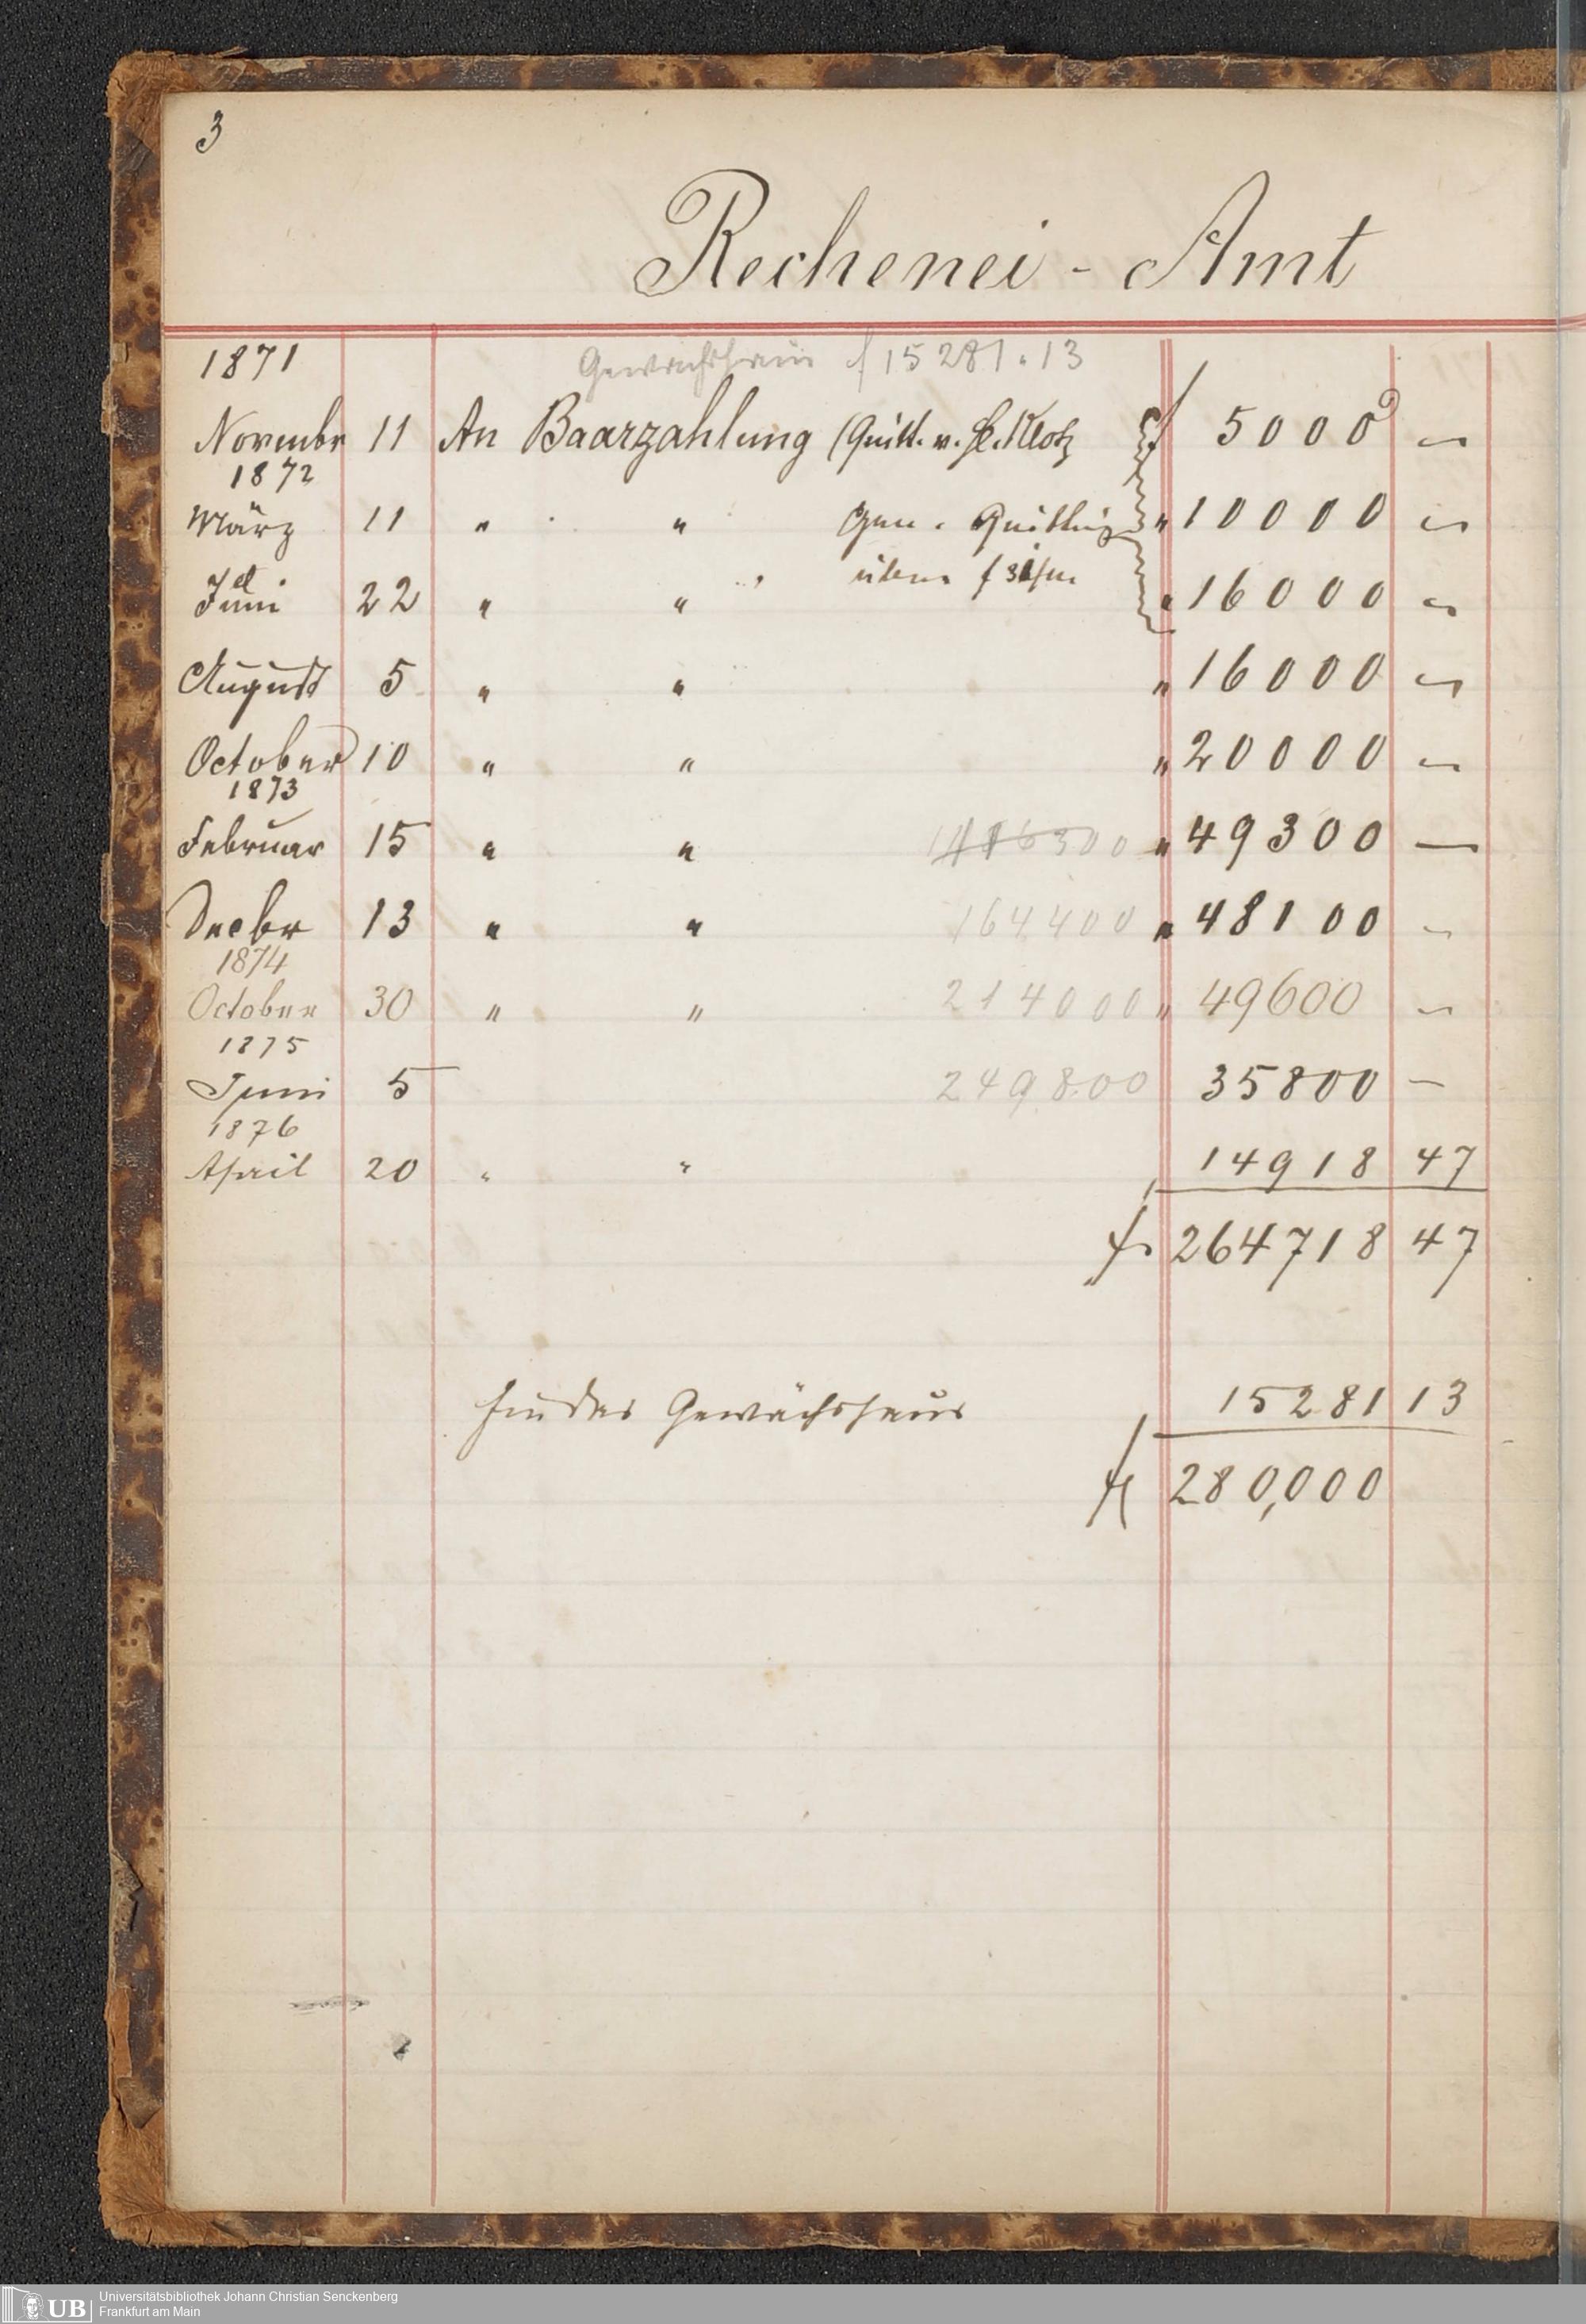 3
Rechenei - Amt
1871 Gewächshaus f 15281.13
Novembr 11 An Baarzahlung (Quitt. v. H. Klotz f 5000 —
1872
März 11 " " Quittung " 10000 —
Juni 22 " " über f " 16000 —
August 5 " " " 16000 —
October 10 " " " 20000 —
1873
Februar 15 " " 116300 " 49300 —
Decbr 13 " " 164400 " 48100 —
1874
October 30 " " 214000 " 49600 —
1875
Juni 5 249800 35800 —
1876
April 20 " " 14918 47
f 264718 47
für das Gewächshaus 15281 13
fl 280,000
UB Universitätsbibliothek Johann Christian Senckenberg
Frankfurt am Main